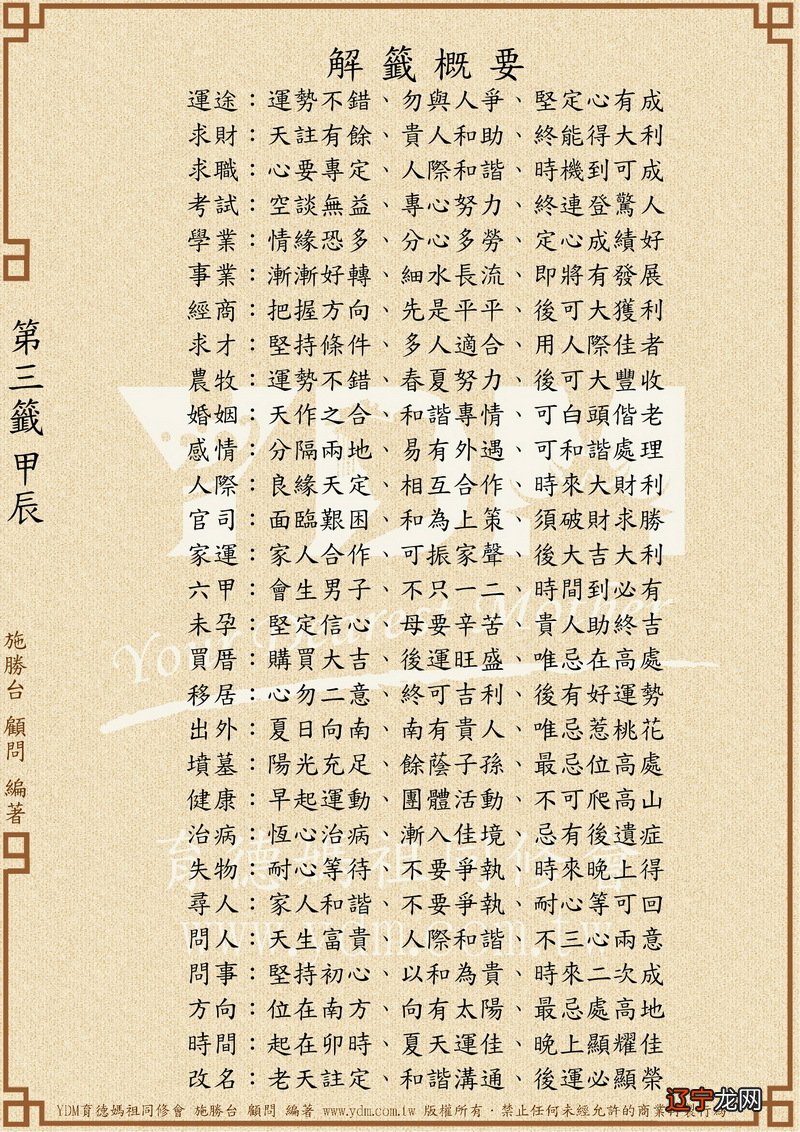 解籤概要
運途：運勢不錯、勿與人爭、堅定心有成
求財：天註有餘、貴人和助、終能得大利
求職：心要專定、人際和諧、時機到可成
考試：空談無益、專心努力、終連登驚人
學業：情緣恐多、分心多勞、定心成績好
事業：漸漸好轉、細水長流、即將有發展
經商：把握方向、先是平平、後可大獲利
求才：堅持條件、多人適合、用人際佳者
農牧：運勢不錯、春夏努力、後可大豐收
婚姻：天作之合、和諧專情、可白頭偕老
感情：分隔兩地、易有外遇、可和諧處理
人際：良緣天定、相互合作、時來大財利
官司：面臨艱困、和為上策、須破財求勝
家運：家人合作、可振家聲、後大吉大利
六甲：會生男子、不只一二、時間到必有
未孕：堅定信心、母要辛苦、貴人助終吉
買厝：購買大吉、後運旺盛、唯忌在高處
移居：心勿二意、終可吉利、後有好運勢
出外：夏日向南、南有貴人、唯忌惹桃花
墳墓：陽光充足、餘蔭子孫、最忌位高處
健康：早起運動、團體活動、不可爬高山
治病：恆心治病、漸入佳境、忌有後遺症
失物：耐心等待、不要爭執、時來晚上得
尋人：家人和諧、不要爭執、耐心等可回
問人：天生富貴、人際和諧、不三心兩意
問事：堅持初心、以和為貴、時來二次成
方向：位在南方、向有太陽、最忌處高地
時間：起在卯時、夏天運佳、晚上顯耀佳
改名：老天註定、和諧溝通、後運必顯榮
第三籤 甲辰
施勝台 顧問 編著
YDM
Your Dearest Mother
育德媽祖同修會
www.ydm.com.tw
YDM育德媽祖同修會 施勝台 顧問 編著 www.ydm.com.tw 版權所有．禁止任何未經允許的商業行為
辽宁龙网